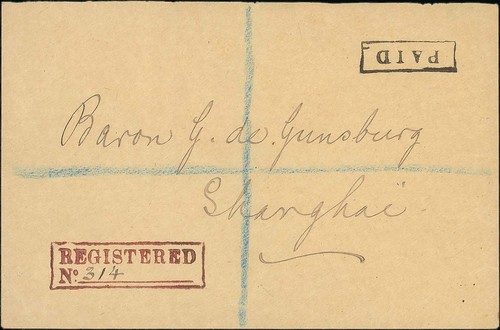 PAID
Baron G. de. Gunsburg
Shanghaï
REGISTERED
Nº. 314